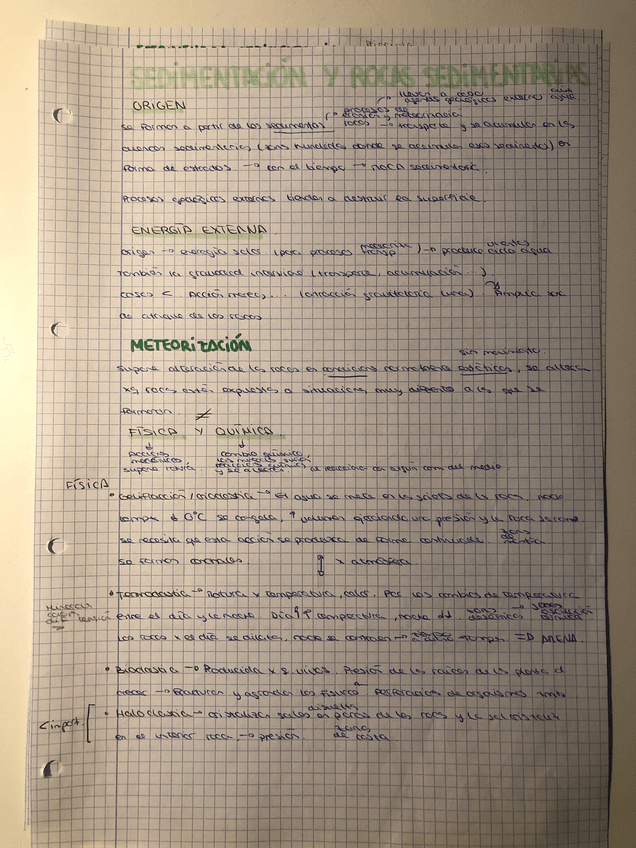 SEDIMENTACIÓN Y ROCAS SEDIMENTARIAS
ORIGEN
llevan a cabo agentes geológicos externos
procesos de erosión y meteorización
Se forman a partir de los sedimentos rocas → transporta y se acumulan en las
cuencas sedimentarias (zonas hundidas donde se acumulan esos sedimentos) en
forma de estratos → con el tiempo → roca sedimentaria.
Procesos geológicos externos tienden a destruir la superficie.
ENERGÍA EXTERNA
origen → energía solar (para procesos meteoriz. transp) → produce vientos ciclo agua
También la gravedad interviene (transporte, acumulación...)
casos < Acción meteo,... (atracción gravitatoria luna) Amplía
de ataque de las rocas
METEORIZACIÓN
sin movimiento.
Supone alteración de las rocas en condiciones estáticas, se altera
xq rocas están expuestas a situaciones muy distinto a las que se
formaron.
≠
FÍSICA Y QUÍMICA
Acción mecánica supone rotura.
cambio químico
reaccionar con algún com. del medio
FÍSICA
• Gelifracción/crioclastia → El agua se mete en las grietas de la roca, noche
temp. ↓ 0°C se congela, ↑ volumen ejerciendo una presión y la roca se rompe
se necesita que esta acción se produzca de forma continuada zonas de montaña
se forman canchales.
• Termoclastia → Rotura x temperatura, calor. Por los cambios de temperatura
entre el día y la noche. Día ↑↑ temperatura, noche ↓↓. zonas desérticas →
Las rocas x el día se dilatan, noche se contraen → temp. => ARENA.
• Bioclastia → Producida x s. vivos. Presión de las raíces de las plantas al
crecer → Fracturan y agrandan las fisuras. Perforaciones de organismos
<import.
• Haloclastia → cristalizan sales disueltas en poros de las rocas y la sal cristaliza
en el interior roca → presión. zonas de costa